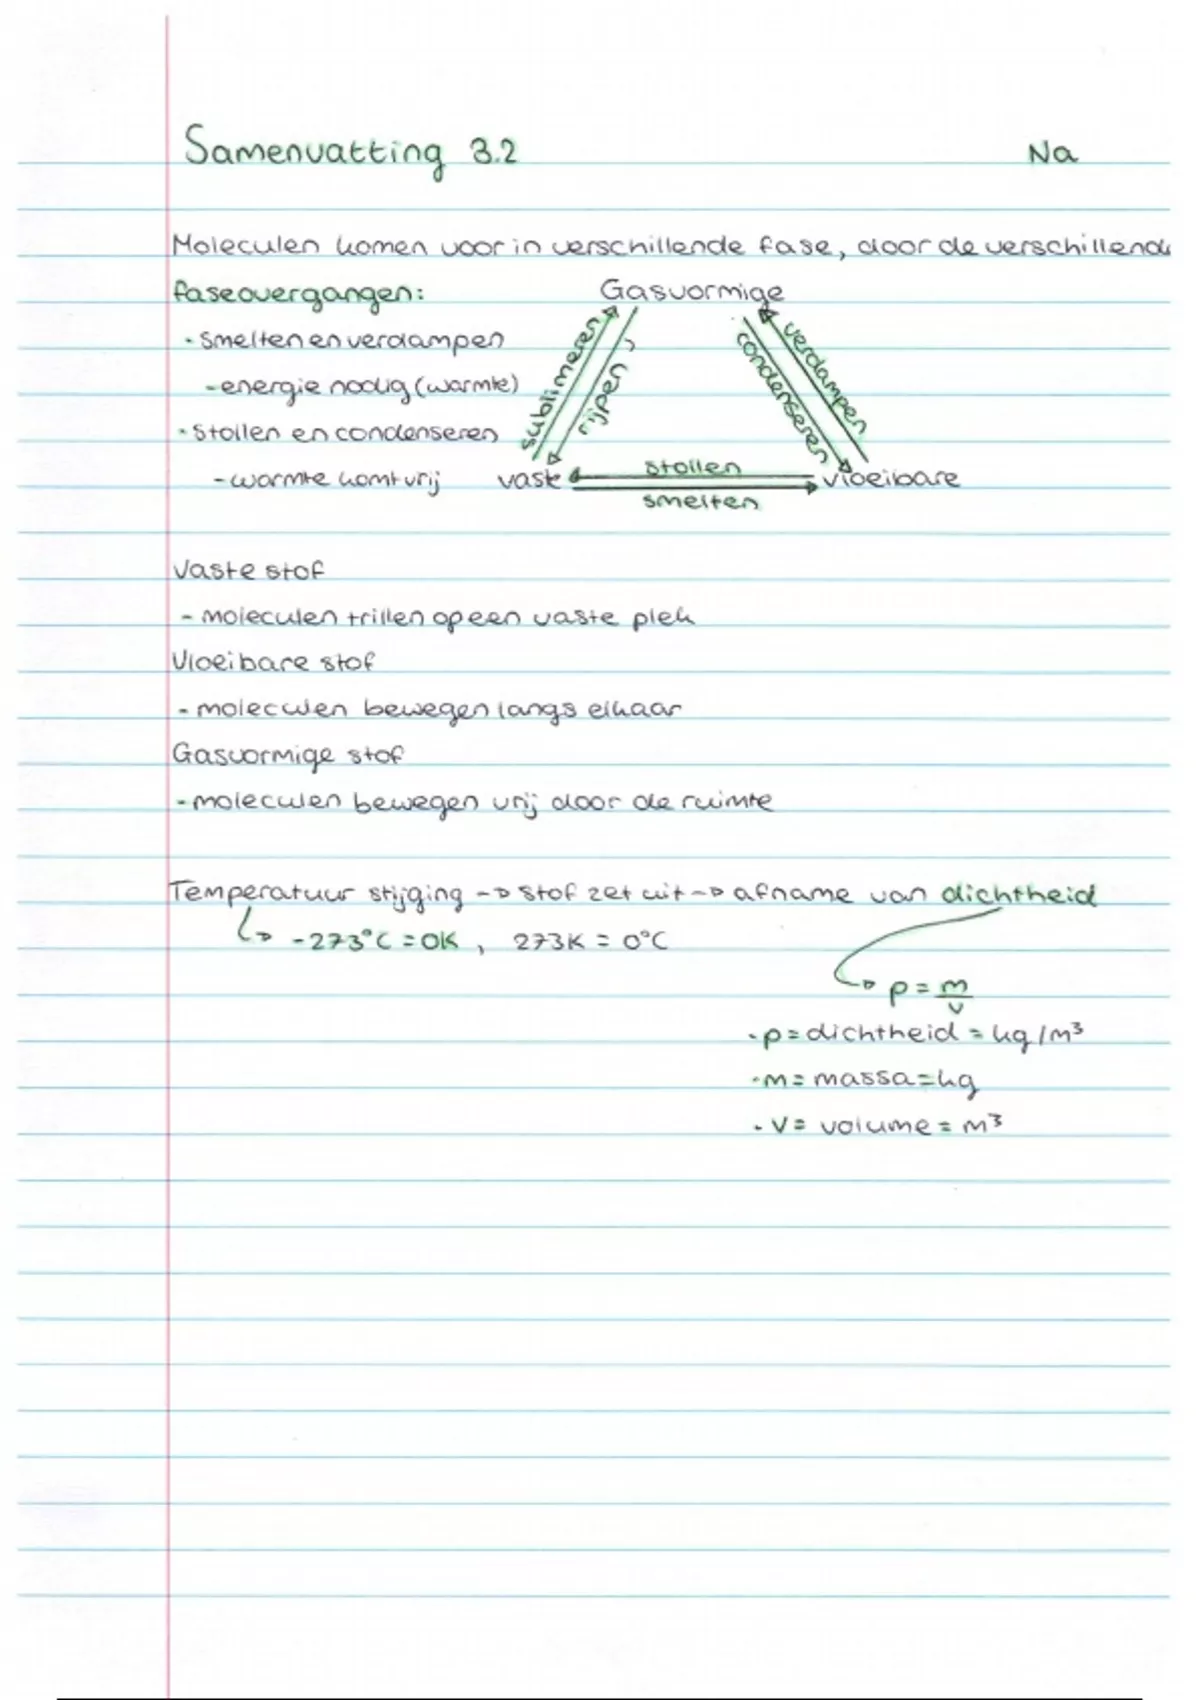 Samenvatting 3.2 Na
Moleculen komen voor in verschillende fase, door de verschillende
faseovergangen: Gasvormige
• smelten en verdampen
- energie nodig (warmte)
• stollen en condenseren
- warmte komt vrij
sublimeren
rijpen
condenseren
verdampen
vaste stollen vloeibare
smelten
Vaste stof
- moleculen trillen op een vaste plek
Vloeibare stof
- moleculen bewegen langs elkaar
Gasvormige stof
- moleculen bewegen vrij door de ruimte
Temperatuur stijging → stof zet uit → afname van dichtheid
↳ -273°C = 0K , 273K = 0°C
↳ p = m/v
• p = dichtheid = kg/m³
• m = massa = kg
• V = volume = m³